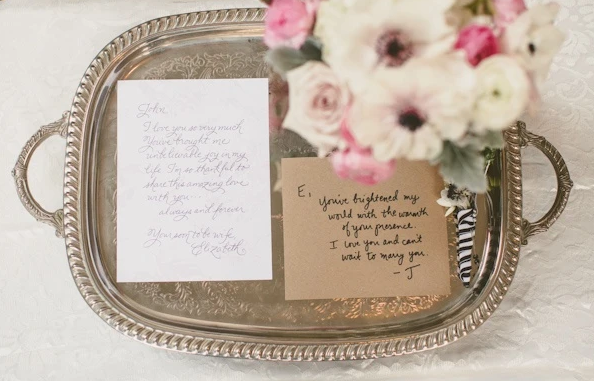 John,
I love you so very much
You've brought me
unbelievable joy in my
life. I'm so thankful to
share this amazing love
with you...
always and forever
Your soon to be wife,
Elizabeth
E,
You've brightened my
world with the warmth
of your presence.
I love you and can't
wait to marry you.
- J